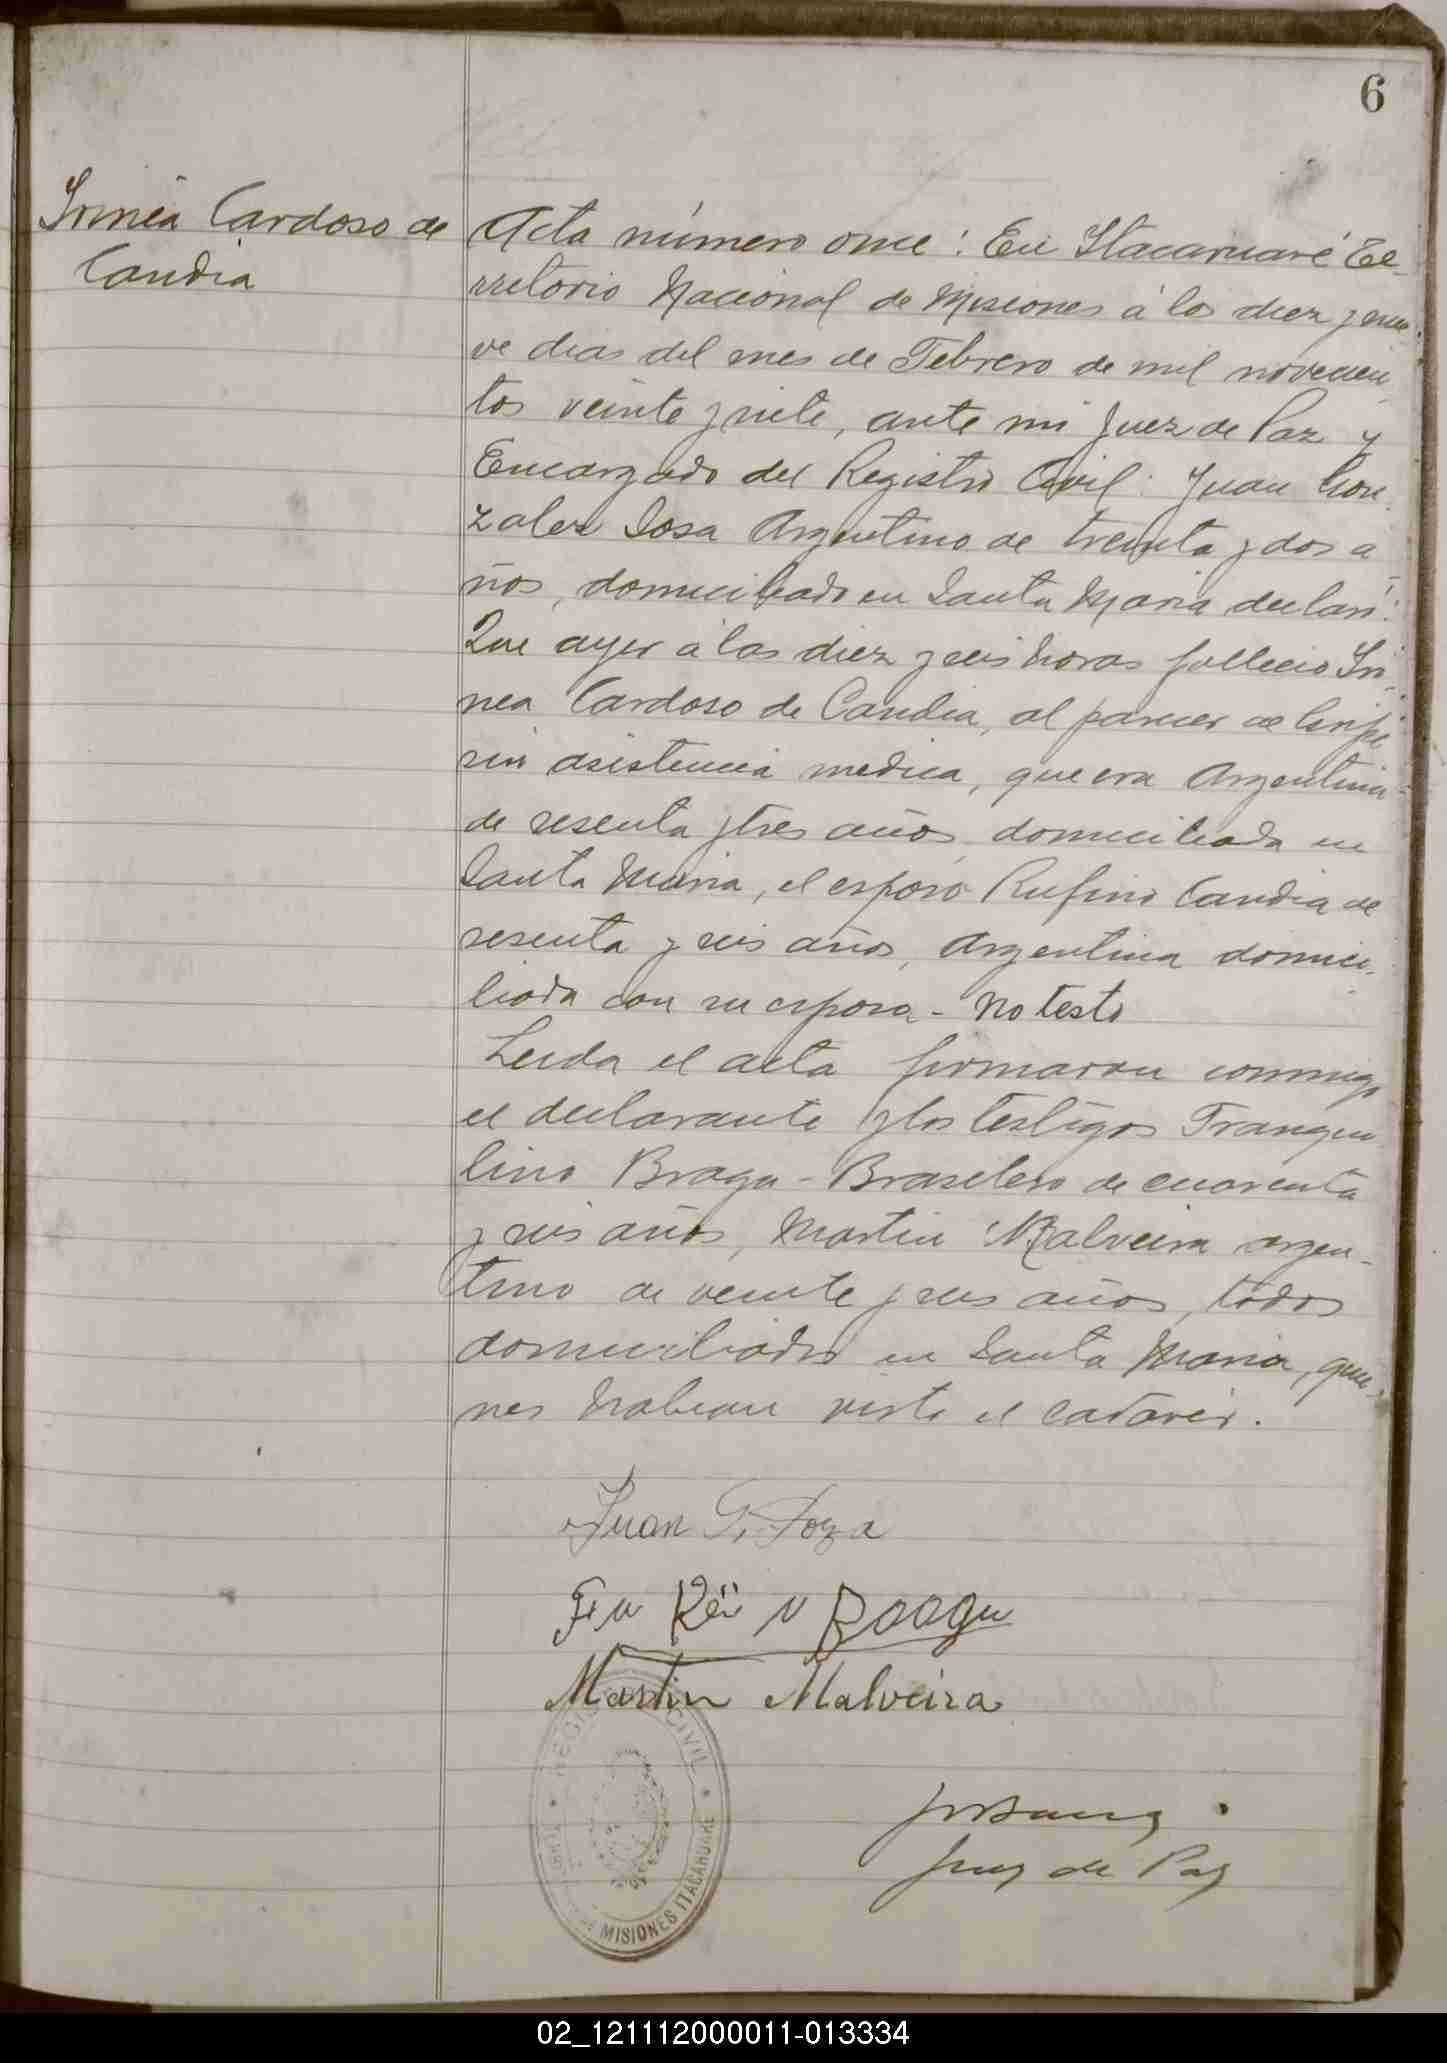 6
Irinéa Cardoso de
Candia
Acta número once: En Itacaruaré Te-
rritorio Nacional de Misiones á los diez y nue-
ve dias del mes de Febrero de mil novecien-
tos veinte y siete, ante mi Juez de Paz y
Encargado del Registro Civil: Juan Gon-
zalez Sosa Argentino de treinta y dos a-
ños, domiciliado en Santa Maria declaró:
Que ayer á las diez y seis horas fallecio Iri-
nea Cardoso de Candia, al parecer de
sin asistencia medica, que era Argentina
de sesenta y tres años, domiciliada en
Santa Maria, el esposo Rufino Candia de
sesenta y seis años, Argentina domici-
liada con su esposa - No testó
Leida el acta firmaron conmigo
el declarante y los testigos Tranqui-
lino Braga - Brasilero de cuarenta
y seis años, Martin Malveira argen-
tino de veinte y seis años, todos
domiciliados en Santa Maria, quie-
nes habian visto el cadáver.
Juan G. Soza
Braga
Martin Malveira
Juez de Paz
REGISTRO CIVIL
MISIONES ITACARUARE
02_121112000011-013334